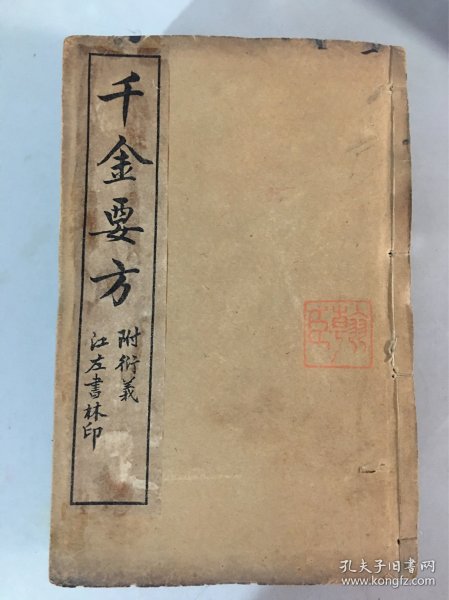 千金要方
附衍義
江左書林印
孔夫子旧书网
www.kongfz.com